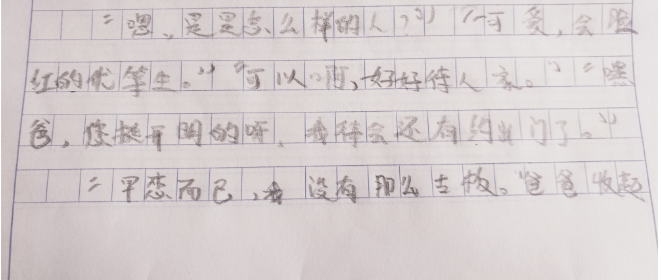 “嗯，是是怎么样的人？”“一可爱，会脸
红的优等生。”“可以啊，好好待人家。”“嘿
爸，您挺开明的呀，我待会还有约出门了。”
“早恋而已，我没有那么古板。爸爸收起